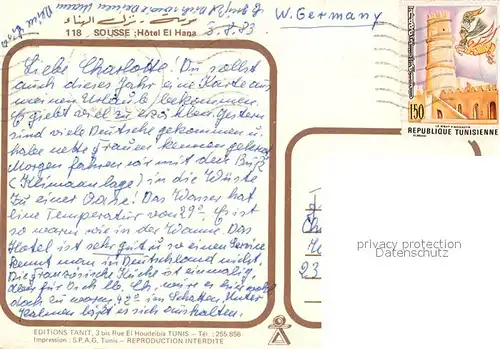 W. Germany
سوسة - نزل الهناء
118 . SOUSSE : Hôtel El Hana
5.8.83
Liebe Charlotte! Du sollst
auch dieses Jahr eine Karte aus
meinem Urlaub bekommen.
Es giebt viel zu erzählen. Gestern
sind viele Deutsche gekommen u.
habe nette Frauen kennen gelernt.
Morgen fahren wir mit dem Buß
(Klimaanlage) in die Wüste
zu einer Oase! Das Wasser hat
eine Temperatur von 29°. Es ist
so warm wie in der Wanne. Das
Hotel ist sehr gut u. so einen Service
kennt man in Deutschland nicht.
Die französische Küche ist einmalig,
doch zu warm, 42° im Schatten. Unter
Palmen läßt es sich aushalten.
150
REPUBLIQUE TUNISIENNE
23
privacy protection
Datenschutz
EDITIONS TANIT, 3 bis Rue El Houdeibia TUNIS - Tél : 255.856
Impression : S.P.A.G. Tunis - REPRODUCTION INTERDITE